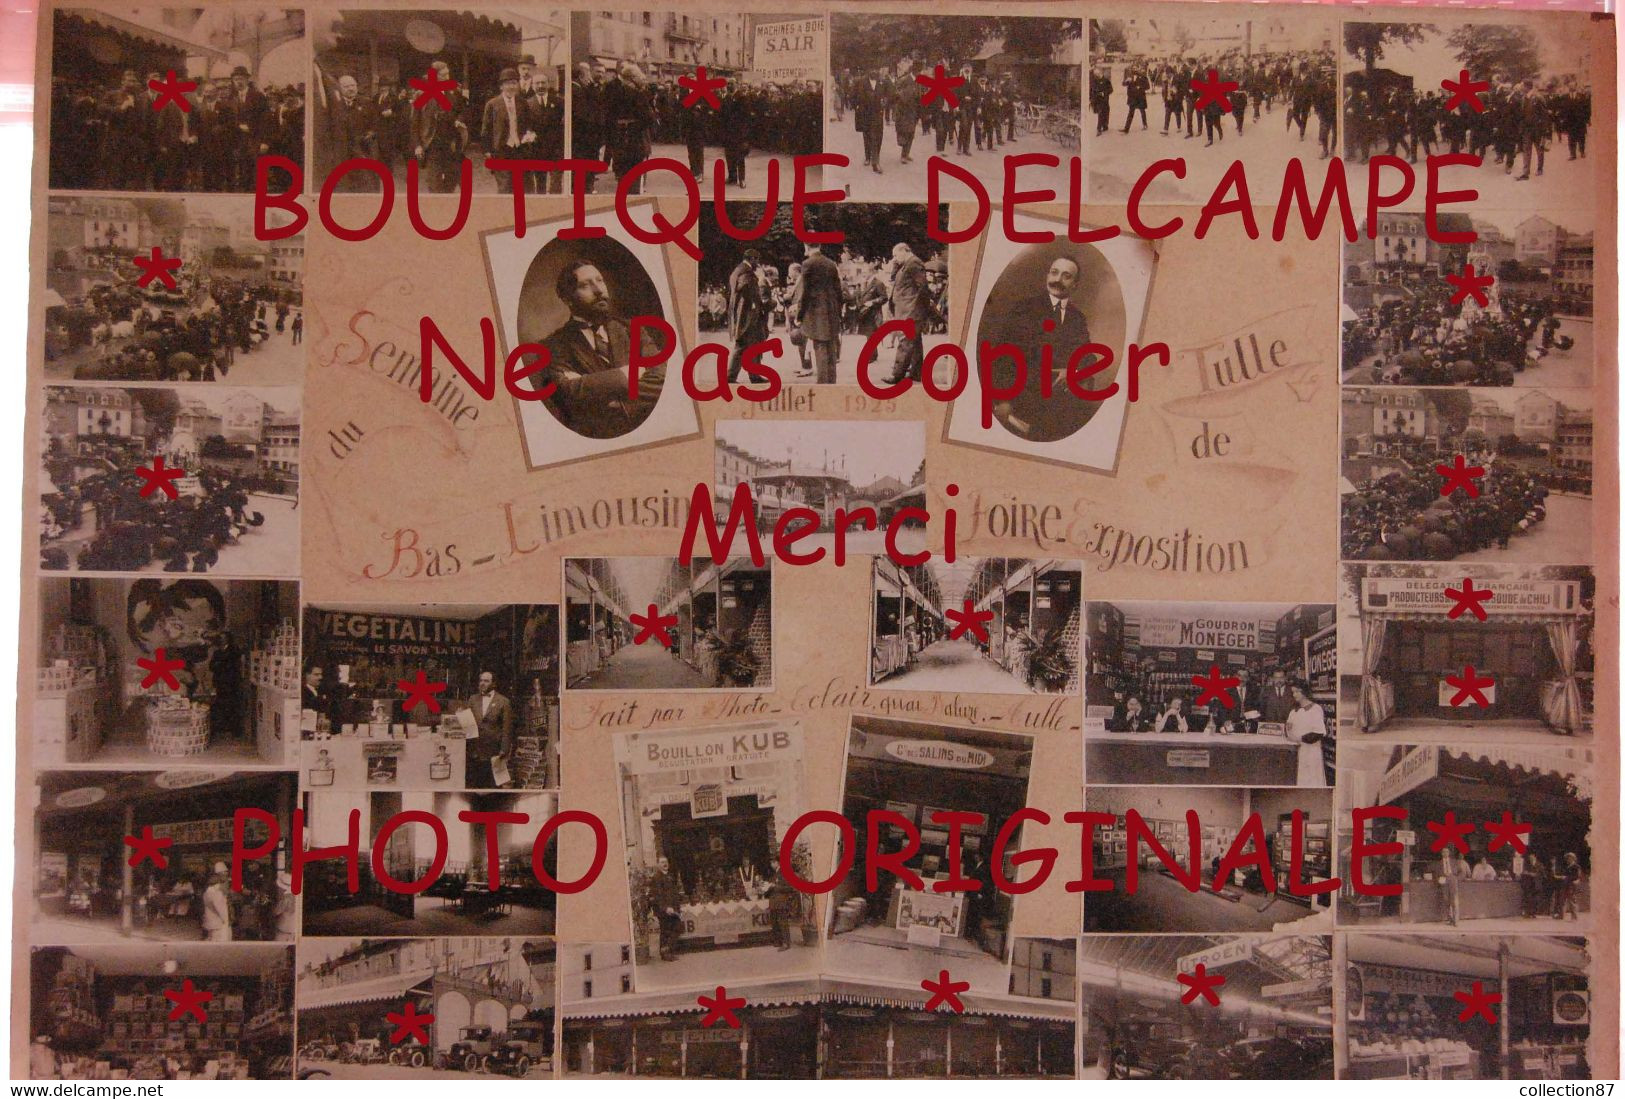 MACHINES A BOIS
S.A.I.R
PAS D'INTERMEDIAIRE
BOUTIQUE DELCAMPE
Ne Pas Copier
Merci
* PHOTO ORIGINALE**
Semaine
du
Bas-Limousin
Juillet 1925
Tulle
de
Foire-Exposition
VEGETALINE
LE SAVON "LA TOUR
GOUDRON
MONEGER
DELEGATION FRANÇAISE
PRODUCTEURS SOUDE du CHILI
Fait par Photo-Eclair, quai Baluze.-Tulle-
BOUILLON KUB
DEGUSTATION GRATUITE
KUB
KUB
KUB
Cie DES SALINS DU MIDI
MODERNE
CITROËN
www.delcampe.net
collection87